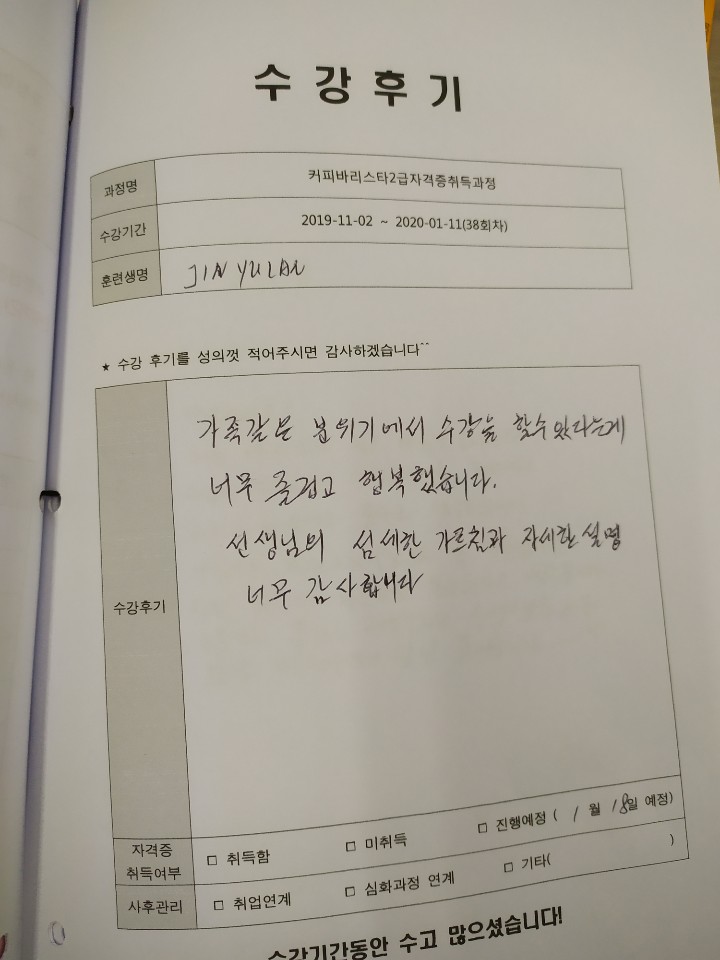 수강후기
과정명 커피바리스타2급자격증취득과정
수강기간 2019-11-02 ~ 2020-01-11(38회차)
훈련생명 JIN YULAN
★ 수강 후기를 성의껏 적어주시면 감사하겠습니다^^
가족같은 분위기에서 수강을 할수 있다는게
너무 즐겁고 행복했습니다.
선생님의 섬세한 가르침과 자세한 설명
너무 감사합니다
수강후기
자격증 취득여부 □ 취득함 □ 미취득 □ 진행예정 ( 1 월 18일 예정)
사후관리 □ 취업연계 □ 심화과정 연계 □ 기타( )
수강기간동안 수고 많으셨습니다!